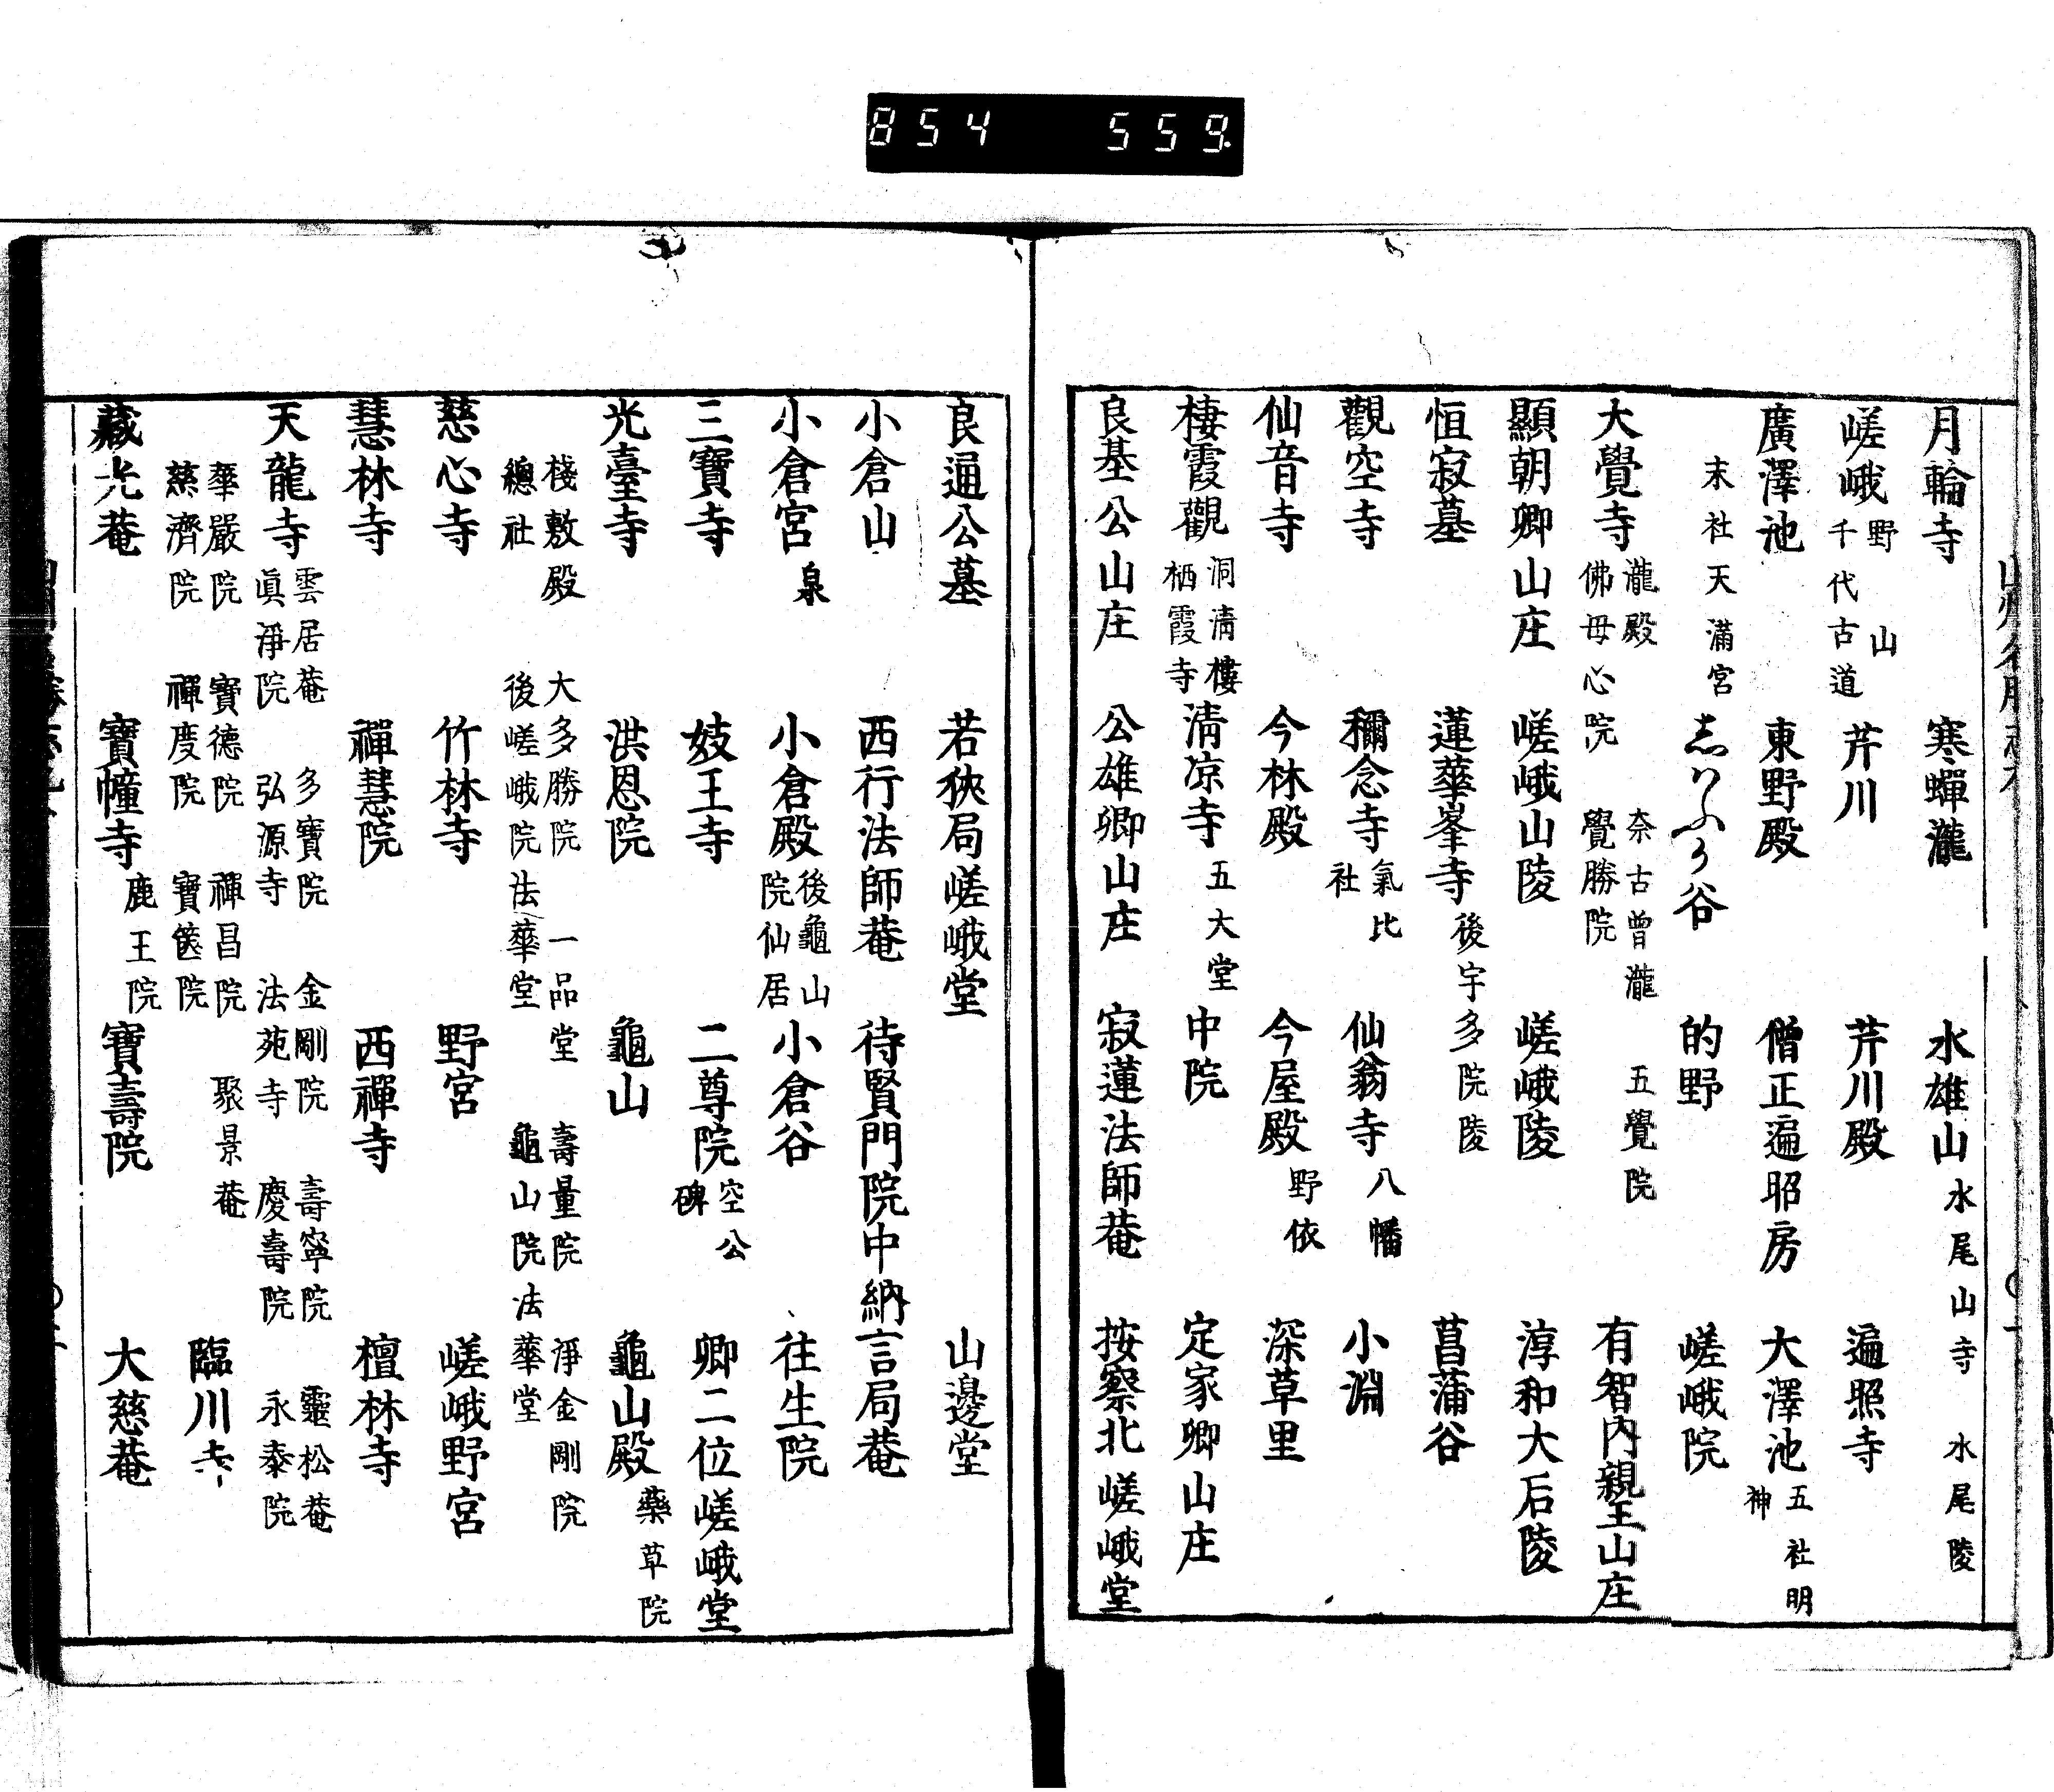 854 559
月輪寺 寒蟬瀧 水雄山 水尾山寺 水尾陵
嵯峨 野 山 千代古道 芹川 芹川殿 遍照寺
廣澤池 東野殿 僧正遍昭房 大澤池 五社明神
末社天滿宮 谷 的野 嵯峨院
大覺寺 瀧殿 佛母心院 奈古曾瀧 覺勝院 五覺院 有智內親王山庄
顯朝卿山庄 嵯峨山陵 嵯峨陵 淳和大后陵
恒寂墓 蓮華峯寺 後宇多院陵 菖蒲谷
觀空寺 稱念寺 氣比社 仙翁寺 八幡 小淵
仙音寺 今林殿 今屋殿 野依 深草里
棲霞觀 洞清樓 栖霞寺 清凉寺 五大堂 中院 定家卿山庄
良基公山庄 公雄卿山庄 寂蓮法師菴 按察北嵯峨堂
良通公墓 若狹局嵯峨堂 山邊堂
小倉山 西行法師菴 待賢門院中納言局菴
小倉宮 泉 小倉殿 後龜山院仙居 小倉谷 往生院
三寶寺 妓王寺 二尊院 空公碑 卿二位嵯峨堂
光臺寺 洪恩院 龜山 龜山殿 藥草院
棧敷殿 大多勝院 一品堂 壽量院 淨金剛院
總社 後嵯峨院法華堂 龜山院法華堂
慈心寺 竹林寺 野宮 嵯峨野宮
慧林寺 禪慧院 西禪寺 檀林寺
天龍寺 雲居菴 多寶院 金剛院 壽寧院 靈松菴
眞淨院 弘源寺 法苑寺 慶壽院 永泰院
華嚴院 寶德院 禪昌院 聚景菴
慈濟院 禪度院 寶篋院 臨川寺
藏光菴 寶幢寺 鹿王院 寶壽院 大慈菴